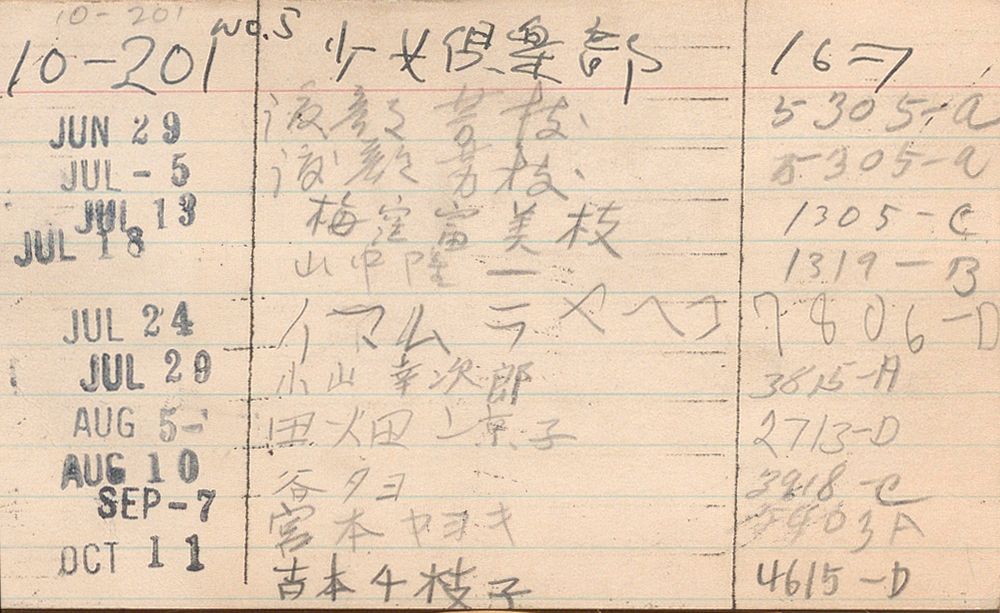 10-201
10-201 No.5 少女倶楽部 16-7
JUN 29 渡部 芳枝 5305-a
JUL - 5 渡部 芳枝 5305-a
JUL 13 梅窪富美枝 1305-C
JUL 18 山中隆一 1319-B
JUL 24 イマムラヤヘ 7806-D
JUL 29 小山幸次郎 3815-A
AUG 5- 田畑 京子 2713-D
AUG 10 谷タヨ 3918-C
SEP-7 宮本ヤヨキ 5903A
OCT 11 古本千枝子 4615-D